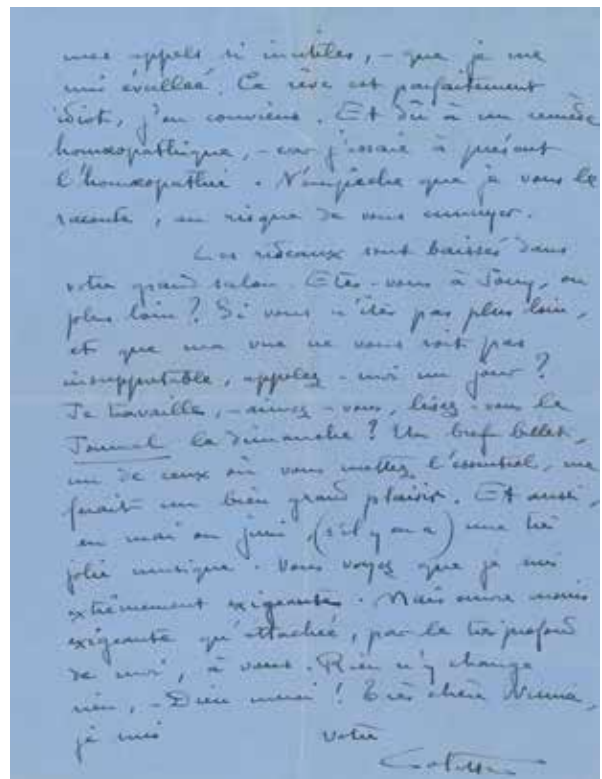 mes appels si inutiles, - que je me
suis éveillée. Ce rêve est parfaitement
idiot, j'en conviens. Et dû à un remède
homœopathique, - car j'essaie à présent
l'homœopathie. N'empêche que je vous le
raconte, au risque de vous ennuyer.
Les rideaux sont baissés dans
votre grand salon. Etes-vous à Jouy, ou
plus loin? Si vous n'êtes pas plus loin,
et que ma vue ne vous soit pas
insupportable, appelez-moi un jour?
Je travaille, - aimez-vous, lisez-vous le
Journal le dimanche? Un bref billet,
un de ceux où vous mettez l'essentiel, me
ferait un bien grand plaisir. Et aussi,
en mai ou juin, (s'il y en a) une très
jolie musique. Vous voyez que je suis
extrêmement exigeante. Mais encore moins
exigeante qu'attachée, par le très profond
de moi, à vous. Rien n'y change
rien, - Dieu merci! Très chère
je suis votre
Colette